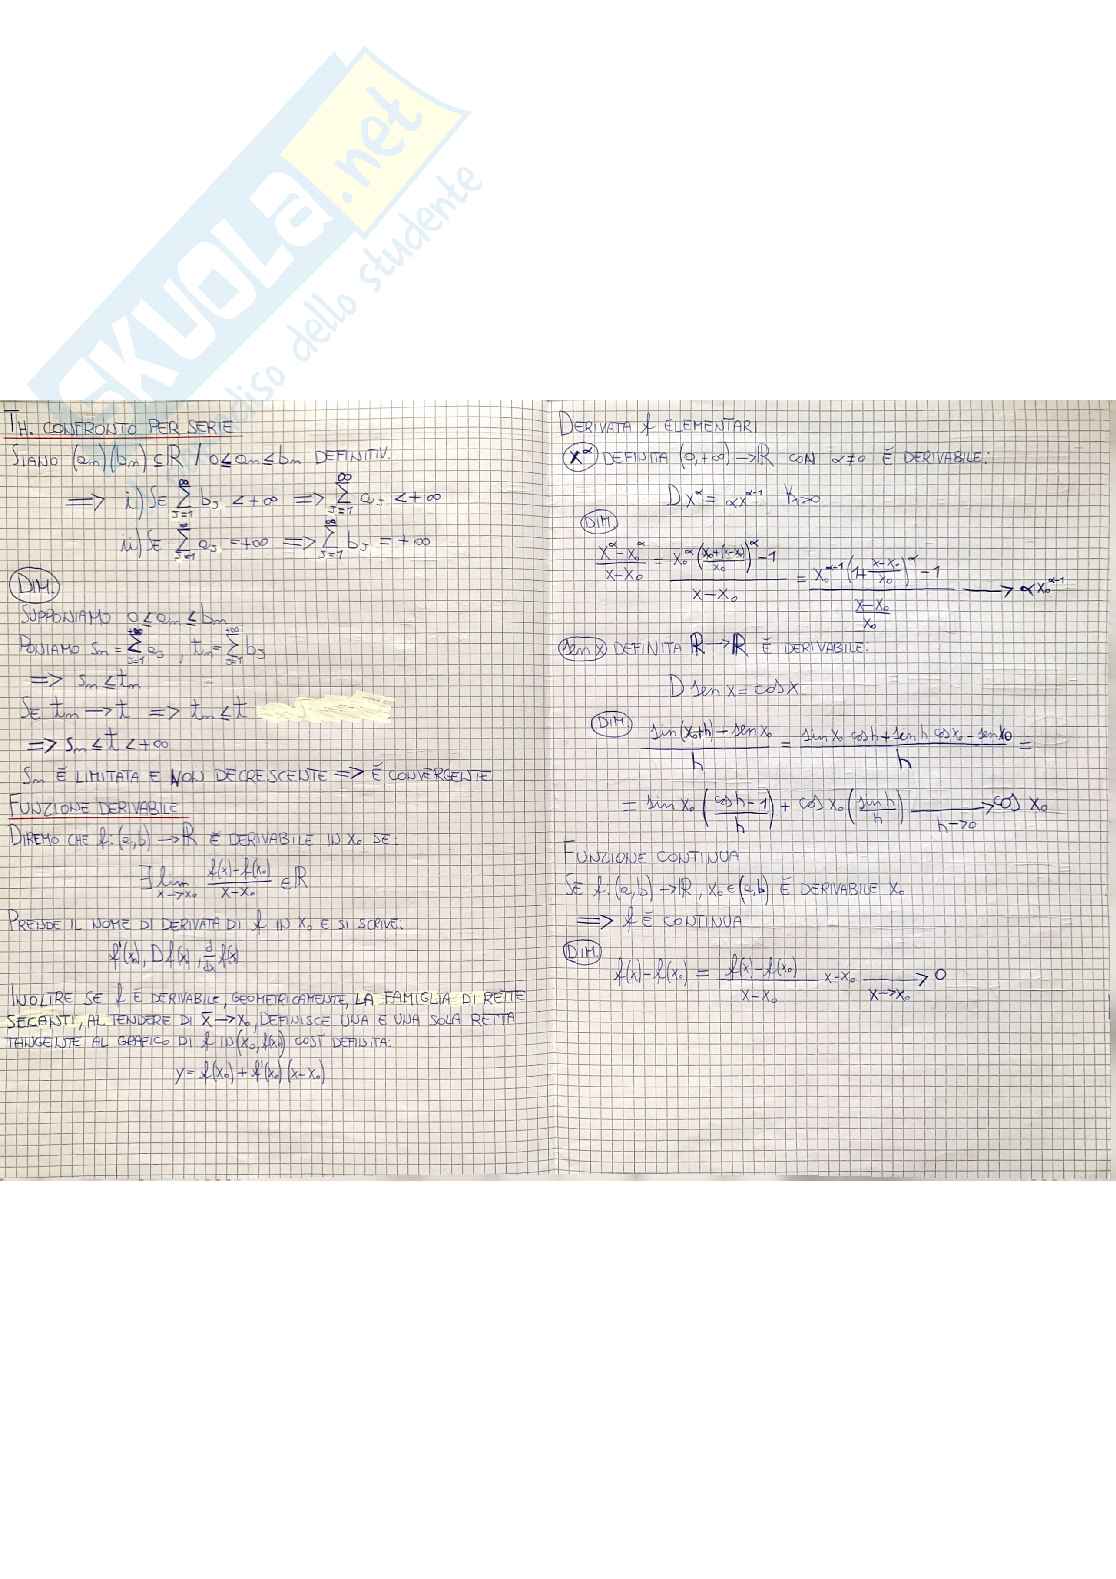 SKUOLA.net
dello studente
TH. CONFRONTO PER SERIE
SIANO (an)(bn) ⊆ ℝ / 0 ≤ an ≤ bn DEFINITIV.
⟹ i) SE ∑_{J=1}^{∞} bJ < +∞ ⟹ ∑_{J=1}^{∞} aJ < +∞
ii) SE ∑_{J=1}^{∞} aJ = +∞ ⟹ ∑_{J=1}^{∞} bJ = +∞
DIM.
SUPPONIAMO 0 ≤ an ≤ bn
PONIAMO Sn = ∑_{J=1}^{+∞} aJ , tn = ∑_{J=1}^{+∞} bJ
⟹ Sn ≤ tn
SE tn → t ⟹ tn ≤ t
⟹ Sn ≤ t < +∞
Sn È LIMITATA E NON DECRESCENTE ⟹ È CONVERGENTE
FUNZIONE DERIVABILE
DIREMO CHE f: (a,b) → ℝ È DERIVABILE IN X₀ SE:
∃ lim_{x→x₀} (f(x) - f(x₀))/(x - x₀) ∈ ℝ
PRENDE IL NOME DI DERIVATA DI f IN X₀ E SI SCRIVE:
f'(x₀), D f(x), d/dx f(x)
INOLTRE SE f È DERIVABILE, GEOMETRICAMENTE, LA FAMIGLIA DI RETTE
SECANTI, AL TENDERE DI X̄ → X₀, DEFINISCE UNA E UNA SOLA RETTA
TANGENTE AL GRAFICO DI f IN (X₀, f(x₀)) COSÌ DEFINITA:
y = f(x₀) + f'(x₀)(x - x₀)
DERIVATA f ELEMENTARI
x^α DEFINITA (0,+∞) → ℝ CON α≠0 È DERIVABILE:
D x^α = αx^{α-1}
DIM
(x^α - x₀^α)/(x - x₀) = (x₀^α ((x₀+(x-x₀))/x₀)^α - 1)/(x - x₀) = (x₀^{α-1} (1 + (x-x₀)/x₀)^α - 1)/((x-x₀)/x₀) → αx₀^{α-1}
sen x DEFINITA ℝ → ℝ È DERIVABILE:
D sen x = cos x
DIM
(sin(x₀+h) - sen x₀)/h = (sin x₀ cos h + sen h cos x₀ - sen x₀)/h =
= sin x₀ ((cos h - 1)/h) + cos x₀ (sin h/h) →_{h→0} cos x₀
FUNZIONE CONTINUA
SE f: (a,b) → ℝ, x₀ ∈ (a,b) È DERIVABILE X₀
⟹ f È CONTINUA
DIM.
f(x) - f(x₀) = (f(x) - f(x₀))/(x - x₀) x - x₀ →_{x→x₀} 0